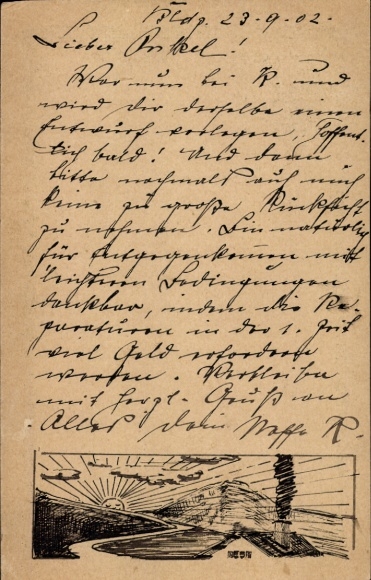 Bldg. 23-9-02.
Lieber Onkel!
War nun bei K. und
wird dir derselbe einen
Entwurf vorlegen. Hoffent-
lich bald! Und dann
bitte nochmals auf mich
keine zu große Rücksicht
zu nehmen. Bin natürlich
für Entgegenkommen mit
leichteren Bedingungen
dankbar, indem die Re-
paraturen in der 1. Zeit
viel Geld erfordern
werden. Verbleibe
mit herzl. Gruß an
Alles dein Neffe K.